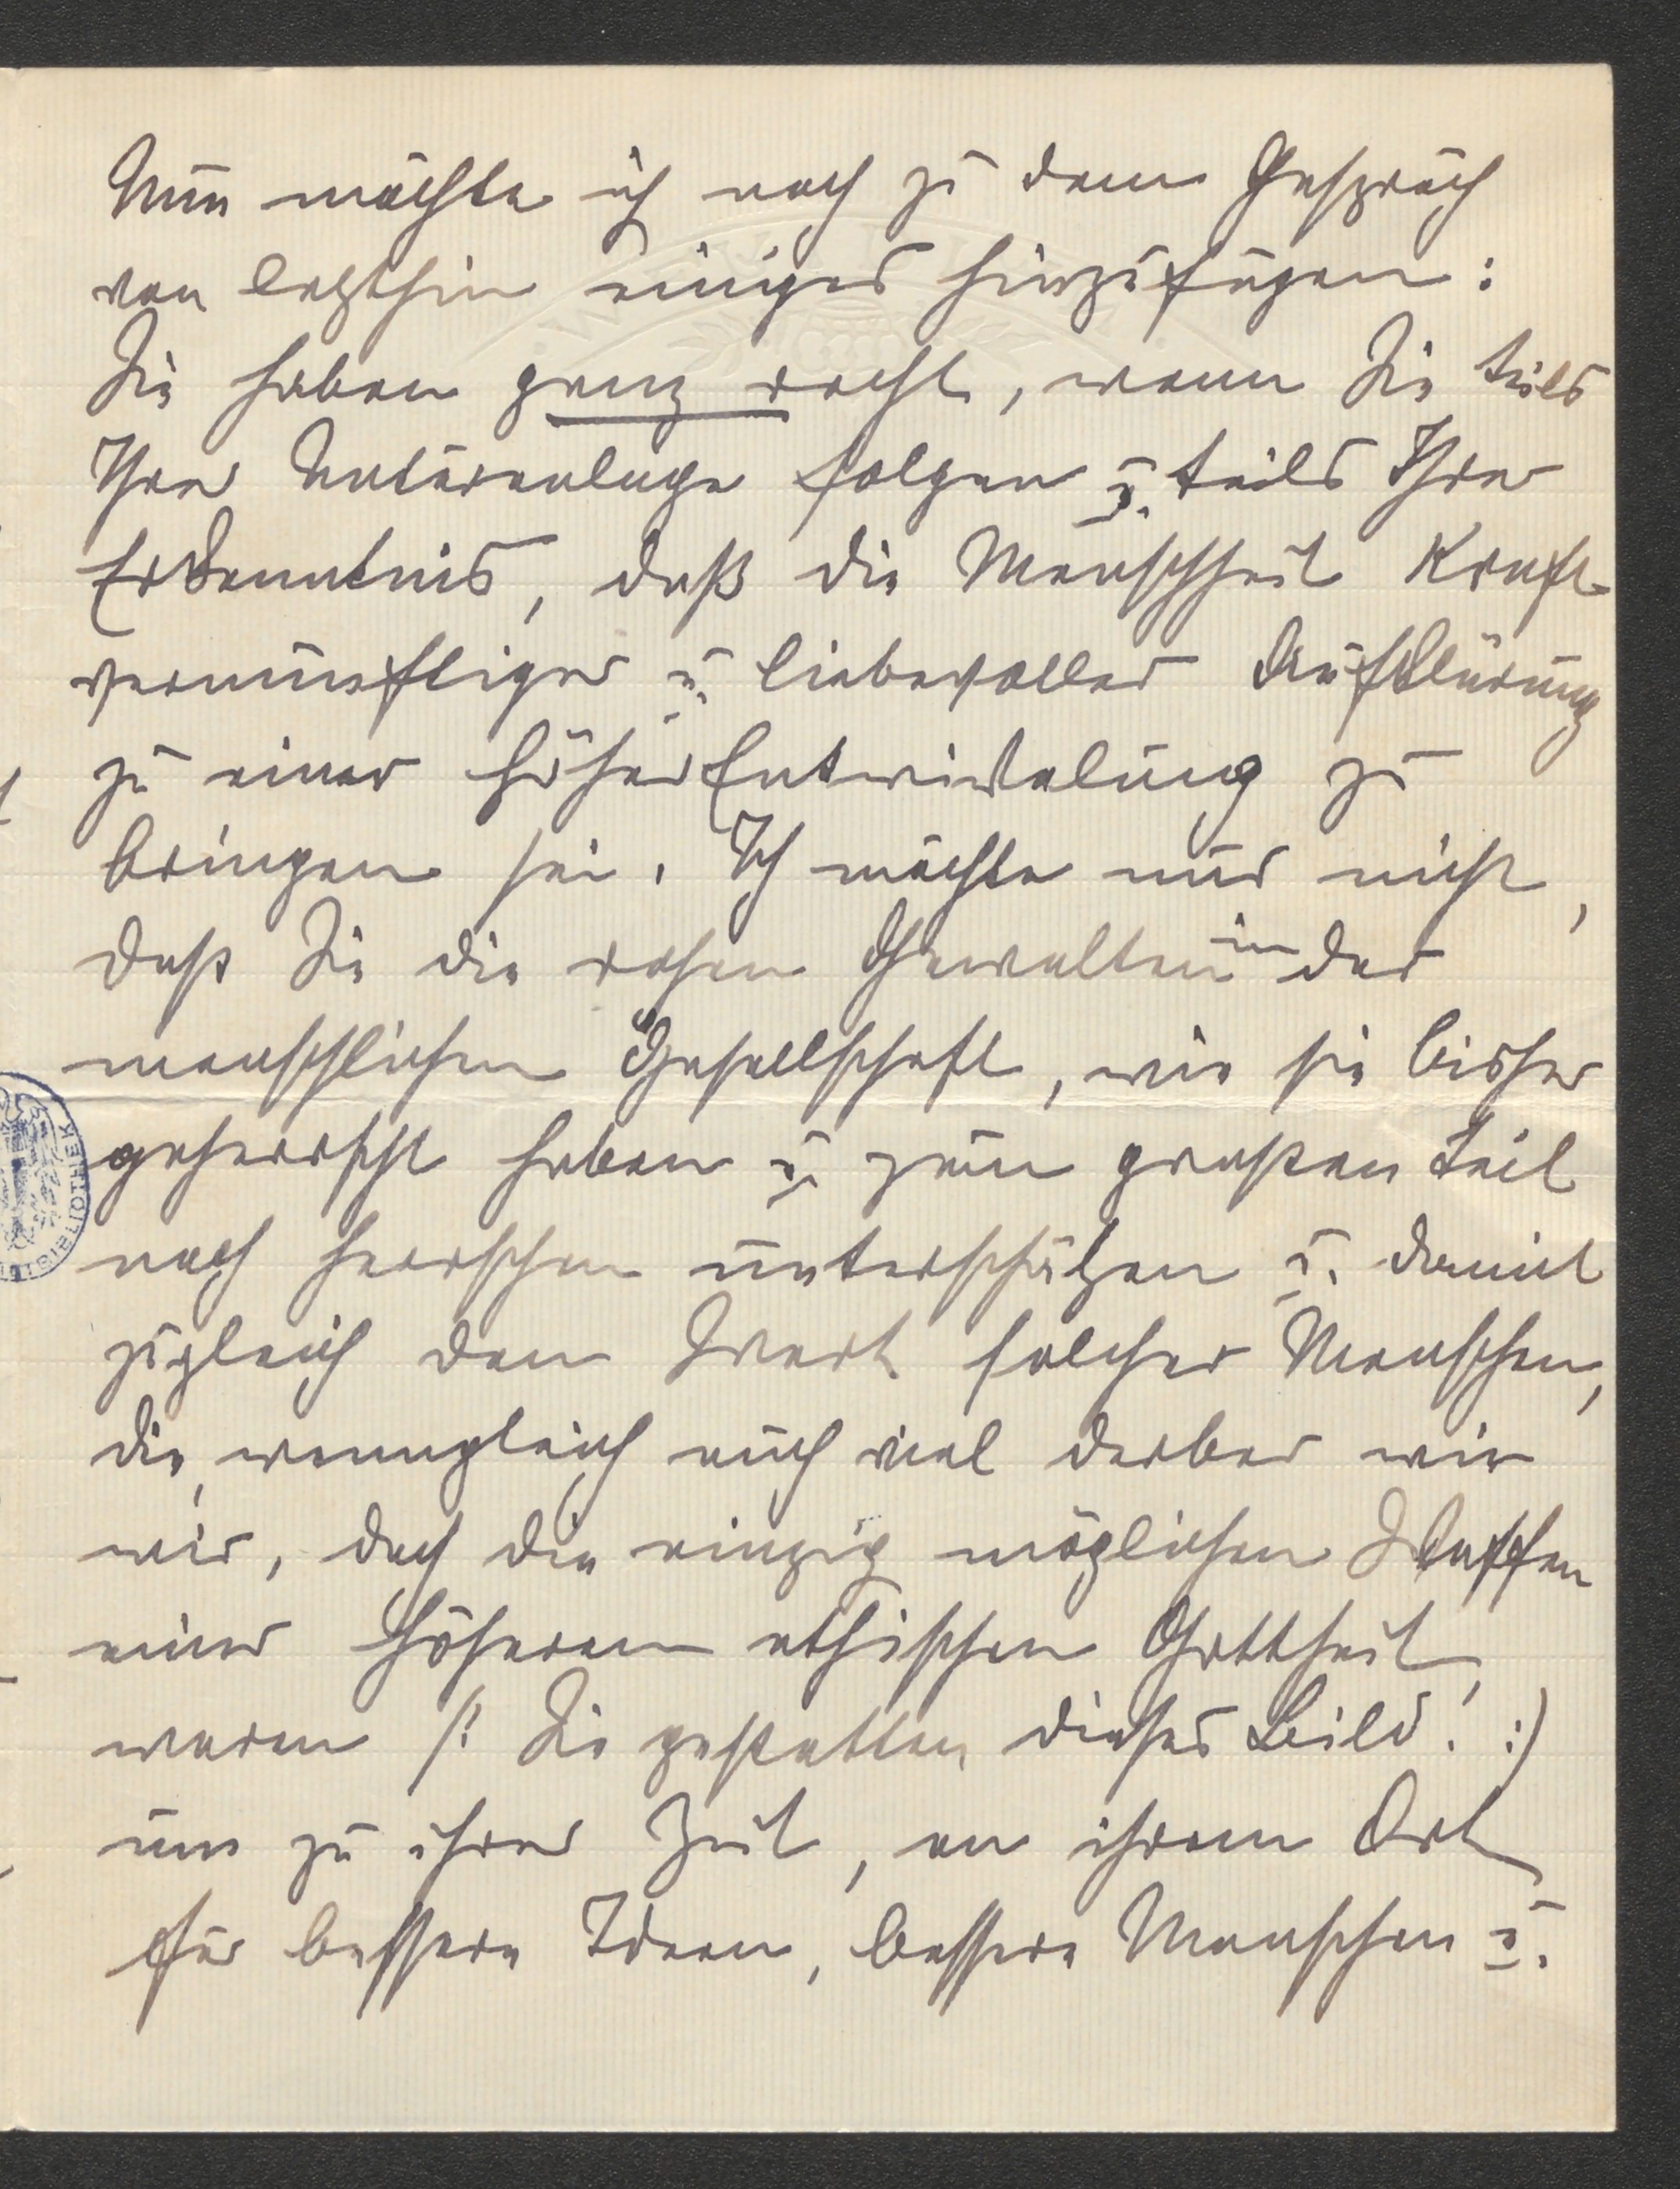 Nun möchte ich noch zu dem Gespräch
von letzthin einiges hinzufügen:
Sie haben ganz recht, wenn Sie teils
Ihrer Naturanlage folgen u. teils Ihrer
Erkenntnis, daß die Menschheit Kraft
vernünftiger u. liebevoller Aufklärung
zu einer Höher Entwickelung zu
bringen sei. Ich möchte nur nicht,
daß Sie die rohen Gewalten in der
menschlichen Gesellschaft, wie sie bisher
geherrscht haben u. zum großen Teil
noch herrschen unterschätzen u. damit
zugleich den Wert solcher Menschen,
die, wenngleich auch viel derber wie
wir, doch die einzig möglichen Waffen
einer höheren ethischen Gottheit,
waren /: Sie gestatten dieses Bild! :)
um zu ihrer Zeit, an ihrem Ort
für bessere Ideen, bessere Menschen u.